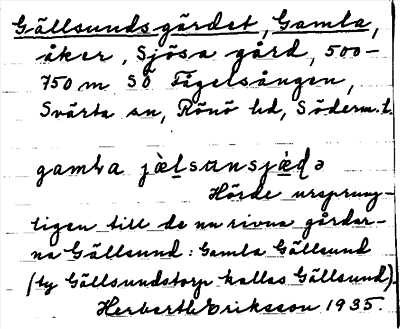 Gällsundsgärdet, Gamla,
åker, Sjösa gård, 500-
750 m SÖ Fågelsången,
Svärta sn, Rönö hd, Söderm. l.
gamla jὰlsɑnsjæ̀ḍə
Hörde ursprung-
ligen till de nu rivna gårdar-
na Gällsund: Gamla Gällsund
(ty Gällsundstorp kallas Gällsund).
Herbert Eriksson 1935.